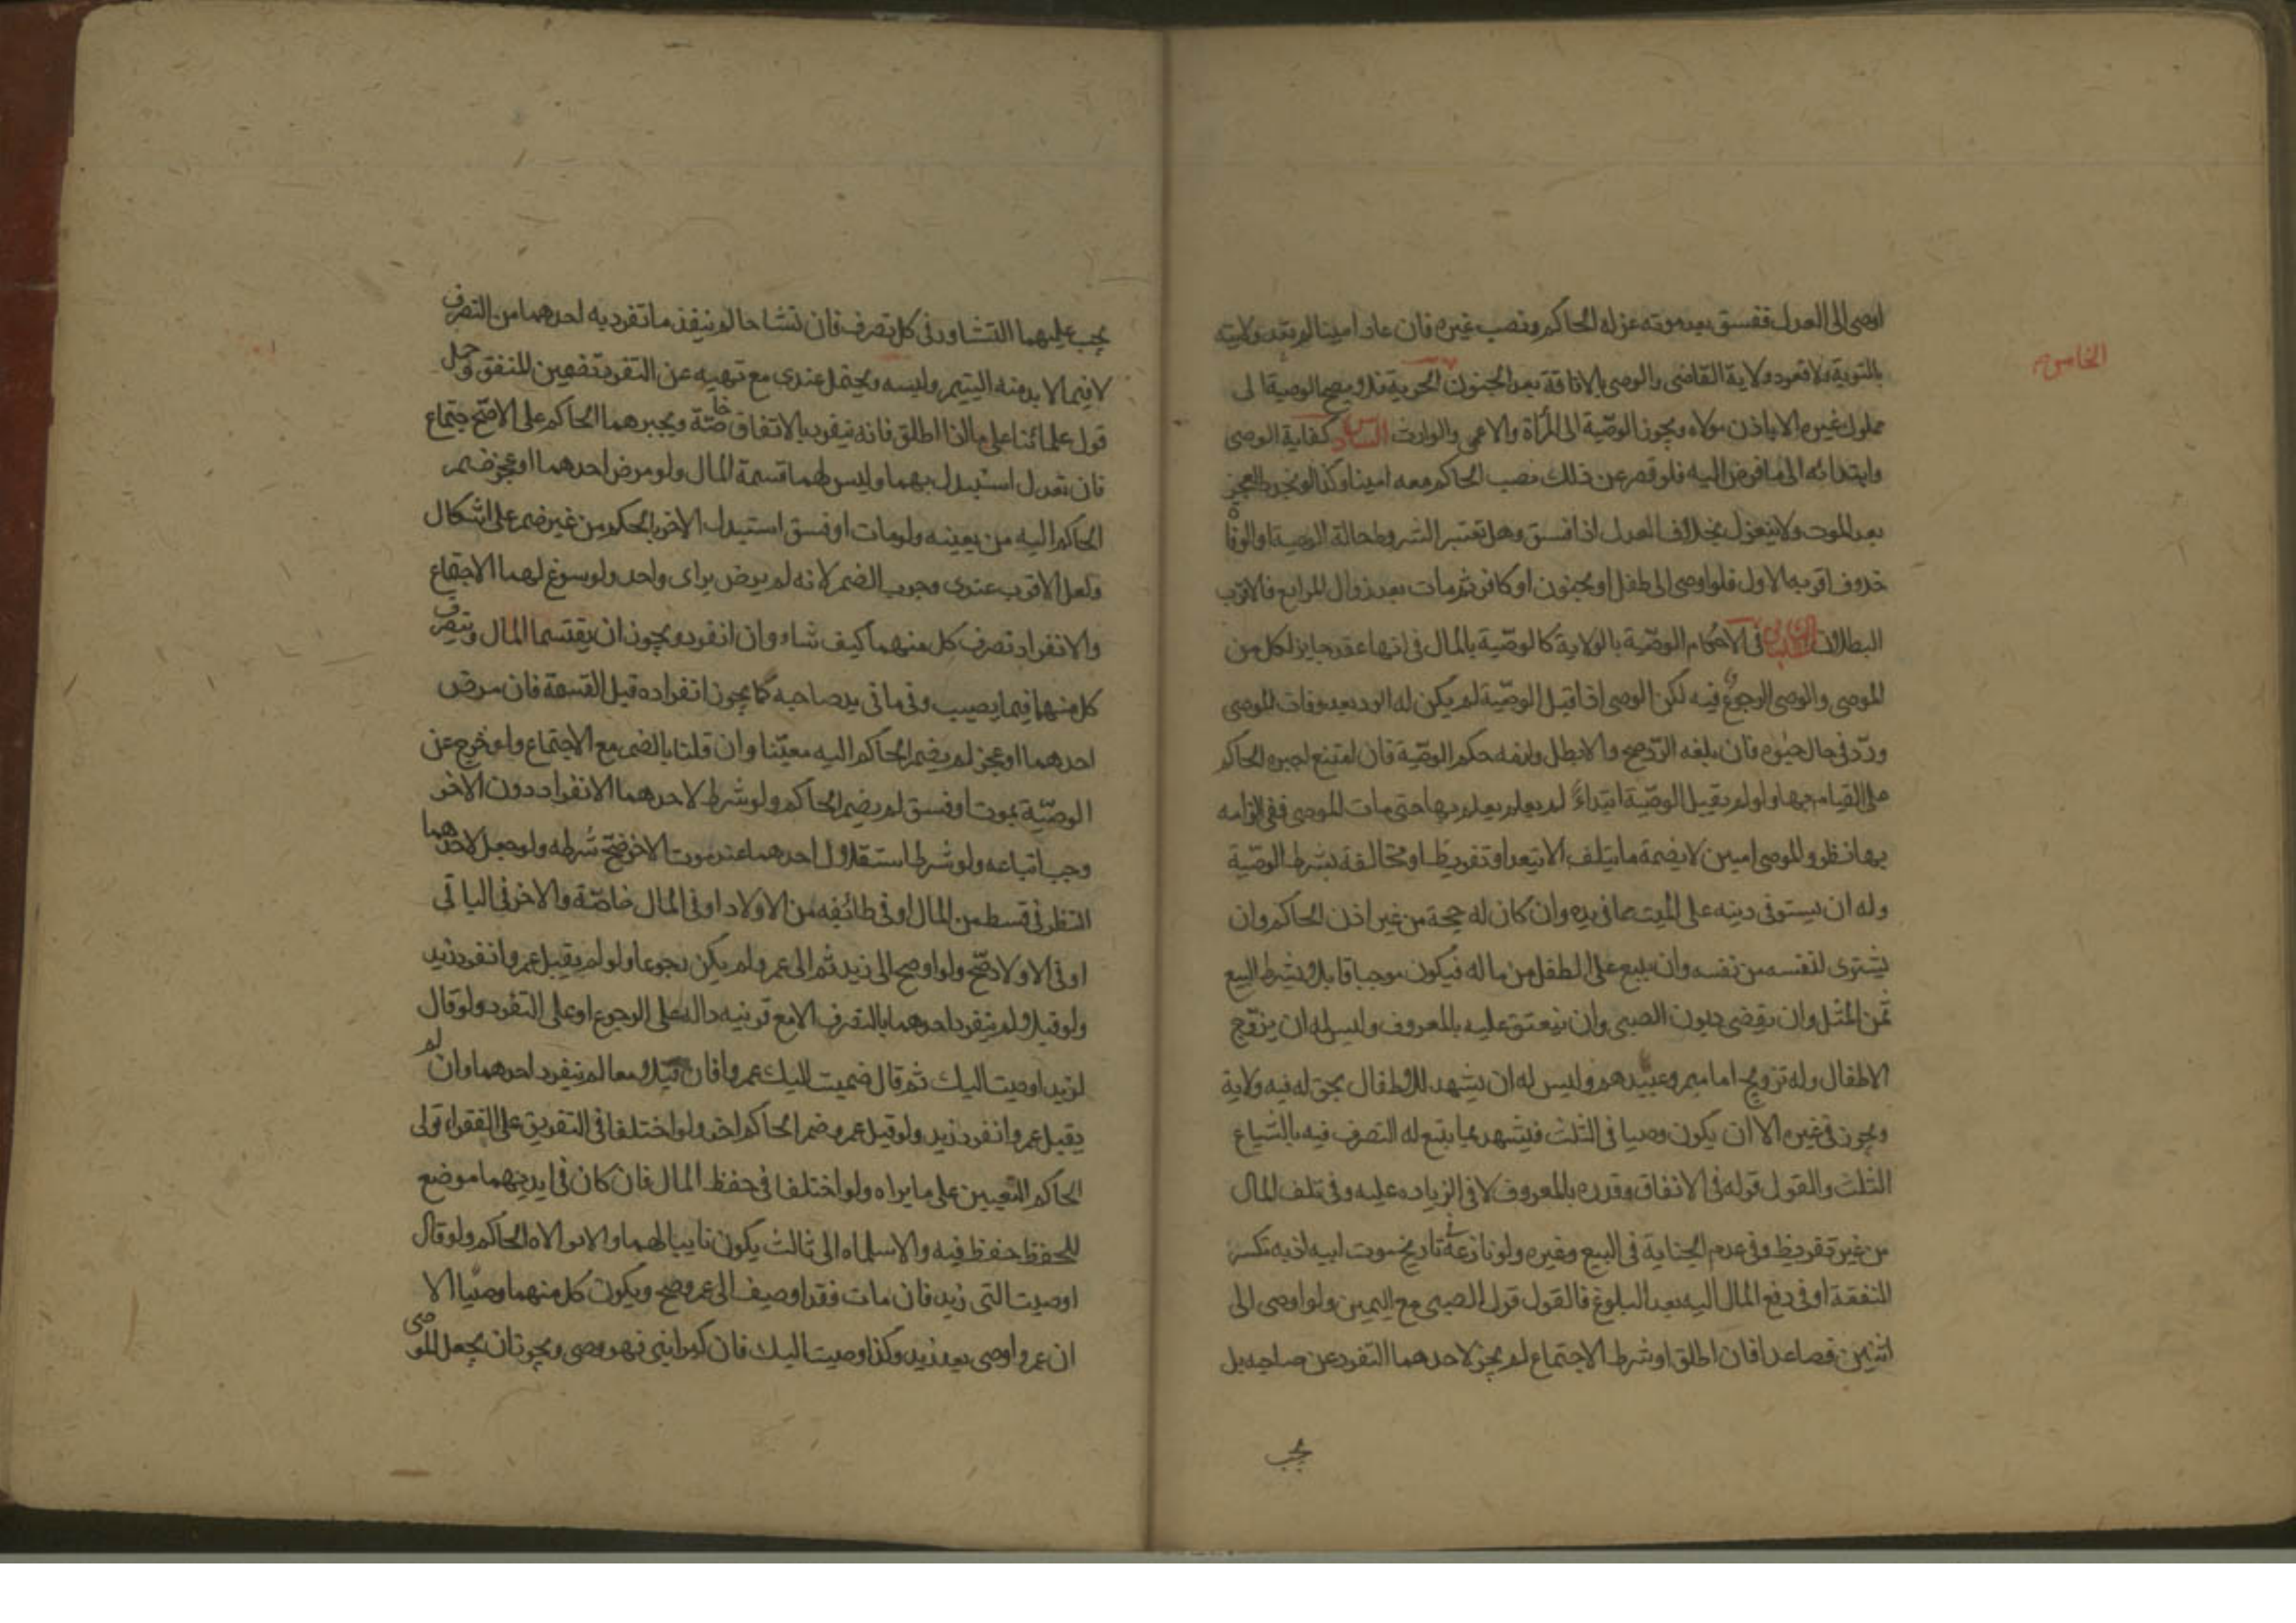 اوصى الى العدل ففسق بعد موته عزله الحاكم ونصب غيره فان عاد امينا لم تعد ولايته
الخامس
بالتوبة ولا تعود ولاية القاضى والوصى بالافاقة بعد الجنون الحرية فلا يصح الوصية الى
مملوك غيره الا باذن مولاه ويجوز الوصّية الى المرأة والاعمى والوارث السادس كفاية الوصى
وابتدائه الى ما فوض اليه فلو قصر عن ذلك نصب الحاكم معه امينا وكذا لو تجدد العجز
بعد الموت ولا ينعزل بخلاف العدل اذا فسق وهل تعتبر الشروط حالة الوصية او الوفاة
خلاف اقربه الاول فلو اوصى الى طفل او مجنون او كافر ثم مات بعد زوال المرابع فالاقرب
البطلان فى الاحكام الوصّية بالولاية كالوصّية بالمال فى انها عقد جايز لكل من
الموصى والوصى الرجوع فيه لكن الوصى اذا قبل الوصّية لم يكن له الرد بعد وفات الموصى
وردّ فى حال حيوته فان بلغه الردّ صح والا بطل ولزمه حكم الوصّية فان امتنع اجبره الحاكم
على القيام بها ولو لم يقبل الوصّية ابتداءً لم يعلم يعلم بها حتى مات الموصى ففى الزامه
بها نظر والموصى امين لا يضمة ما يتلف الا بتعد او تفريط او مخالفة بشرط الوصّية
وله ان يستوفى دينه على الميت مما فى يده وان كان له حجة من غير اذن الحاكم وان
يشترى لنفسه من نفسه وان يبيع على الطفل من ماله فيكون موجبا قابلا بشرط البيع
ثمن المثل وان يقضى ديون الصبى وان ينعتق عليه بالمعروف وليس له ان يزوّج
الاطفال وله تزويج امايهم وعبيدهم وليس له ان يشهد للاطفال بحق له فيه ولاية
ويجوز فى غيره الا ان يكون وصيا فى الثلث فيشهد بما يتبع له التصرف فيه بالشياع
الثلث والقول قوله فى الانفاق وقدره بالمعروف لا فى الزياده عليه وفى تلف المال
من غير تفريط وفى عدم الجناية فى البيع وغيره ولو نازعه فى تاريخ موت ابيه اذ به تكسر
النفقة او فى دفع المال اليه بعد البلوغ فالقول قول الصبى مع اليمين ولو اوصى الى
اثنين فصاعدا فان اطلق او شرط الاجتماع لم يجز لاحدهما التفرد عن صاحبه بل
يجب
يجب عليهما التشاور فى كل تصرف فان تشاحا لم ينفذ ما تفرد به احدهما من التصرف
لا فيما لا بد منه اليتيم ولبسه ويحتمل عندى مع نهيه عن التفرد تضمين المنفق وحمل
قول علمائنا على ما اذا اطلق فانه ينفرد بالاتفاق خاصّة ويجبرهما الحاكم على الاجتماع
فان تعدل استبدل بهما وليس لهما قسمة المال ولو مرض احدهما او عجز ضم
الحاكم اليه من يعينه ولو مات او فسق استبدل الاخر بالحكم من غير ضم على اشكال
ولعل الاقرب عندى وجوب الضم لانه لم يرض براى واحد ولو سوغ لهما الاجتماع
والانفراد تصرف كل منهما كيف شاء وان انفرد ويجوز ان يقتسما المال ويتصرف
كل منهما فيما يصيب وفى ما فى يد صاحبه كما يجوز انفراده قبل القسمة فان مرض
احدهما او عجز لم يضم الحاكم اليه معيّنا وان قلنا بالضم مع الاجتماع ولو خرج عن
الوصيّة بموت او فسق لم يضم الحاكم ولو شرط لاحدهما الانفراد دون الاخر
وجب اتباعه ولو شرط استقلال احدهما عند موت الاخر صّح شرطه ولو جعل لاحدهما
النظر فى قسط من المال او فى طائفه من الاولاد او فى المال خاصّة والاخر فى الباقى
او فى الاولاد صّح ولو اوصح الى زيد ثم الى عمرو لم يكن رجوعا ولو لم يقبل عمرو انفرد زيد
ولو قبلا لم ينفرد احدهما بالتصرف الا مع قرينيه داله على الرجوع او على التفرد ولو قال
لزيد اوصيت اليك ثم قال ضميت اليك عمروا فان قبلا معا لم ينفرد احدهما وان لم
يقبل عمرو انفرد زيد ولو قبل عمرو ضم الحاكم اخر ولو اختلفا فى التفريق على الفقراء تولى
الحاكم التعيين على ما يراه ولو اختلفا فى حفظ المال فان كان فى ايديهما موضع
للحفظ حفظ فيه والا سلماه الى ثالث يكون نايبا لهما والا تولاه الحاكم ولو قال
اوصيت الى زيد فان مات فقد اوصيف الى عمرو صح ويكون كل منهما وصيّا الا
ان عمروا وصى بعد زيد وكذا اوصيت اليك فان كبر ابنى فهو وصى ويجوز ان يجعل للموصى